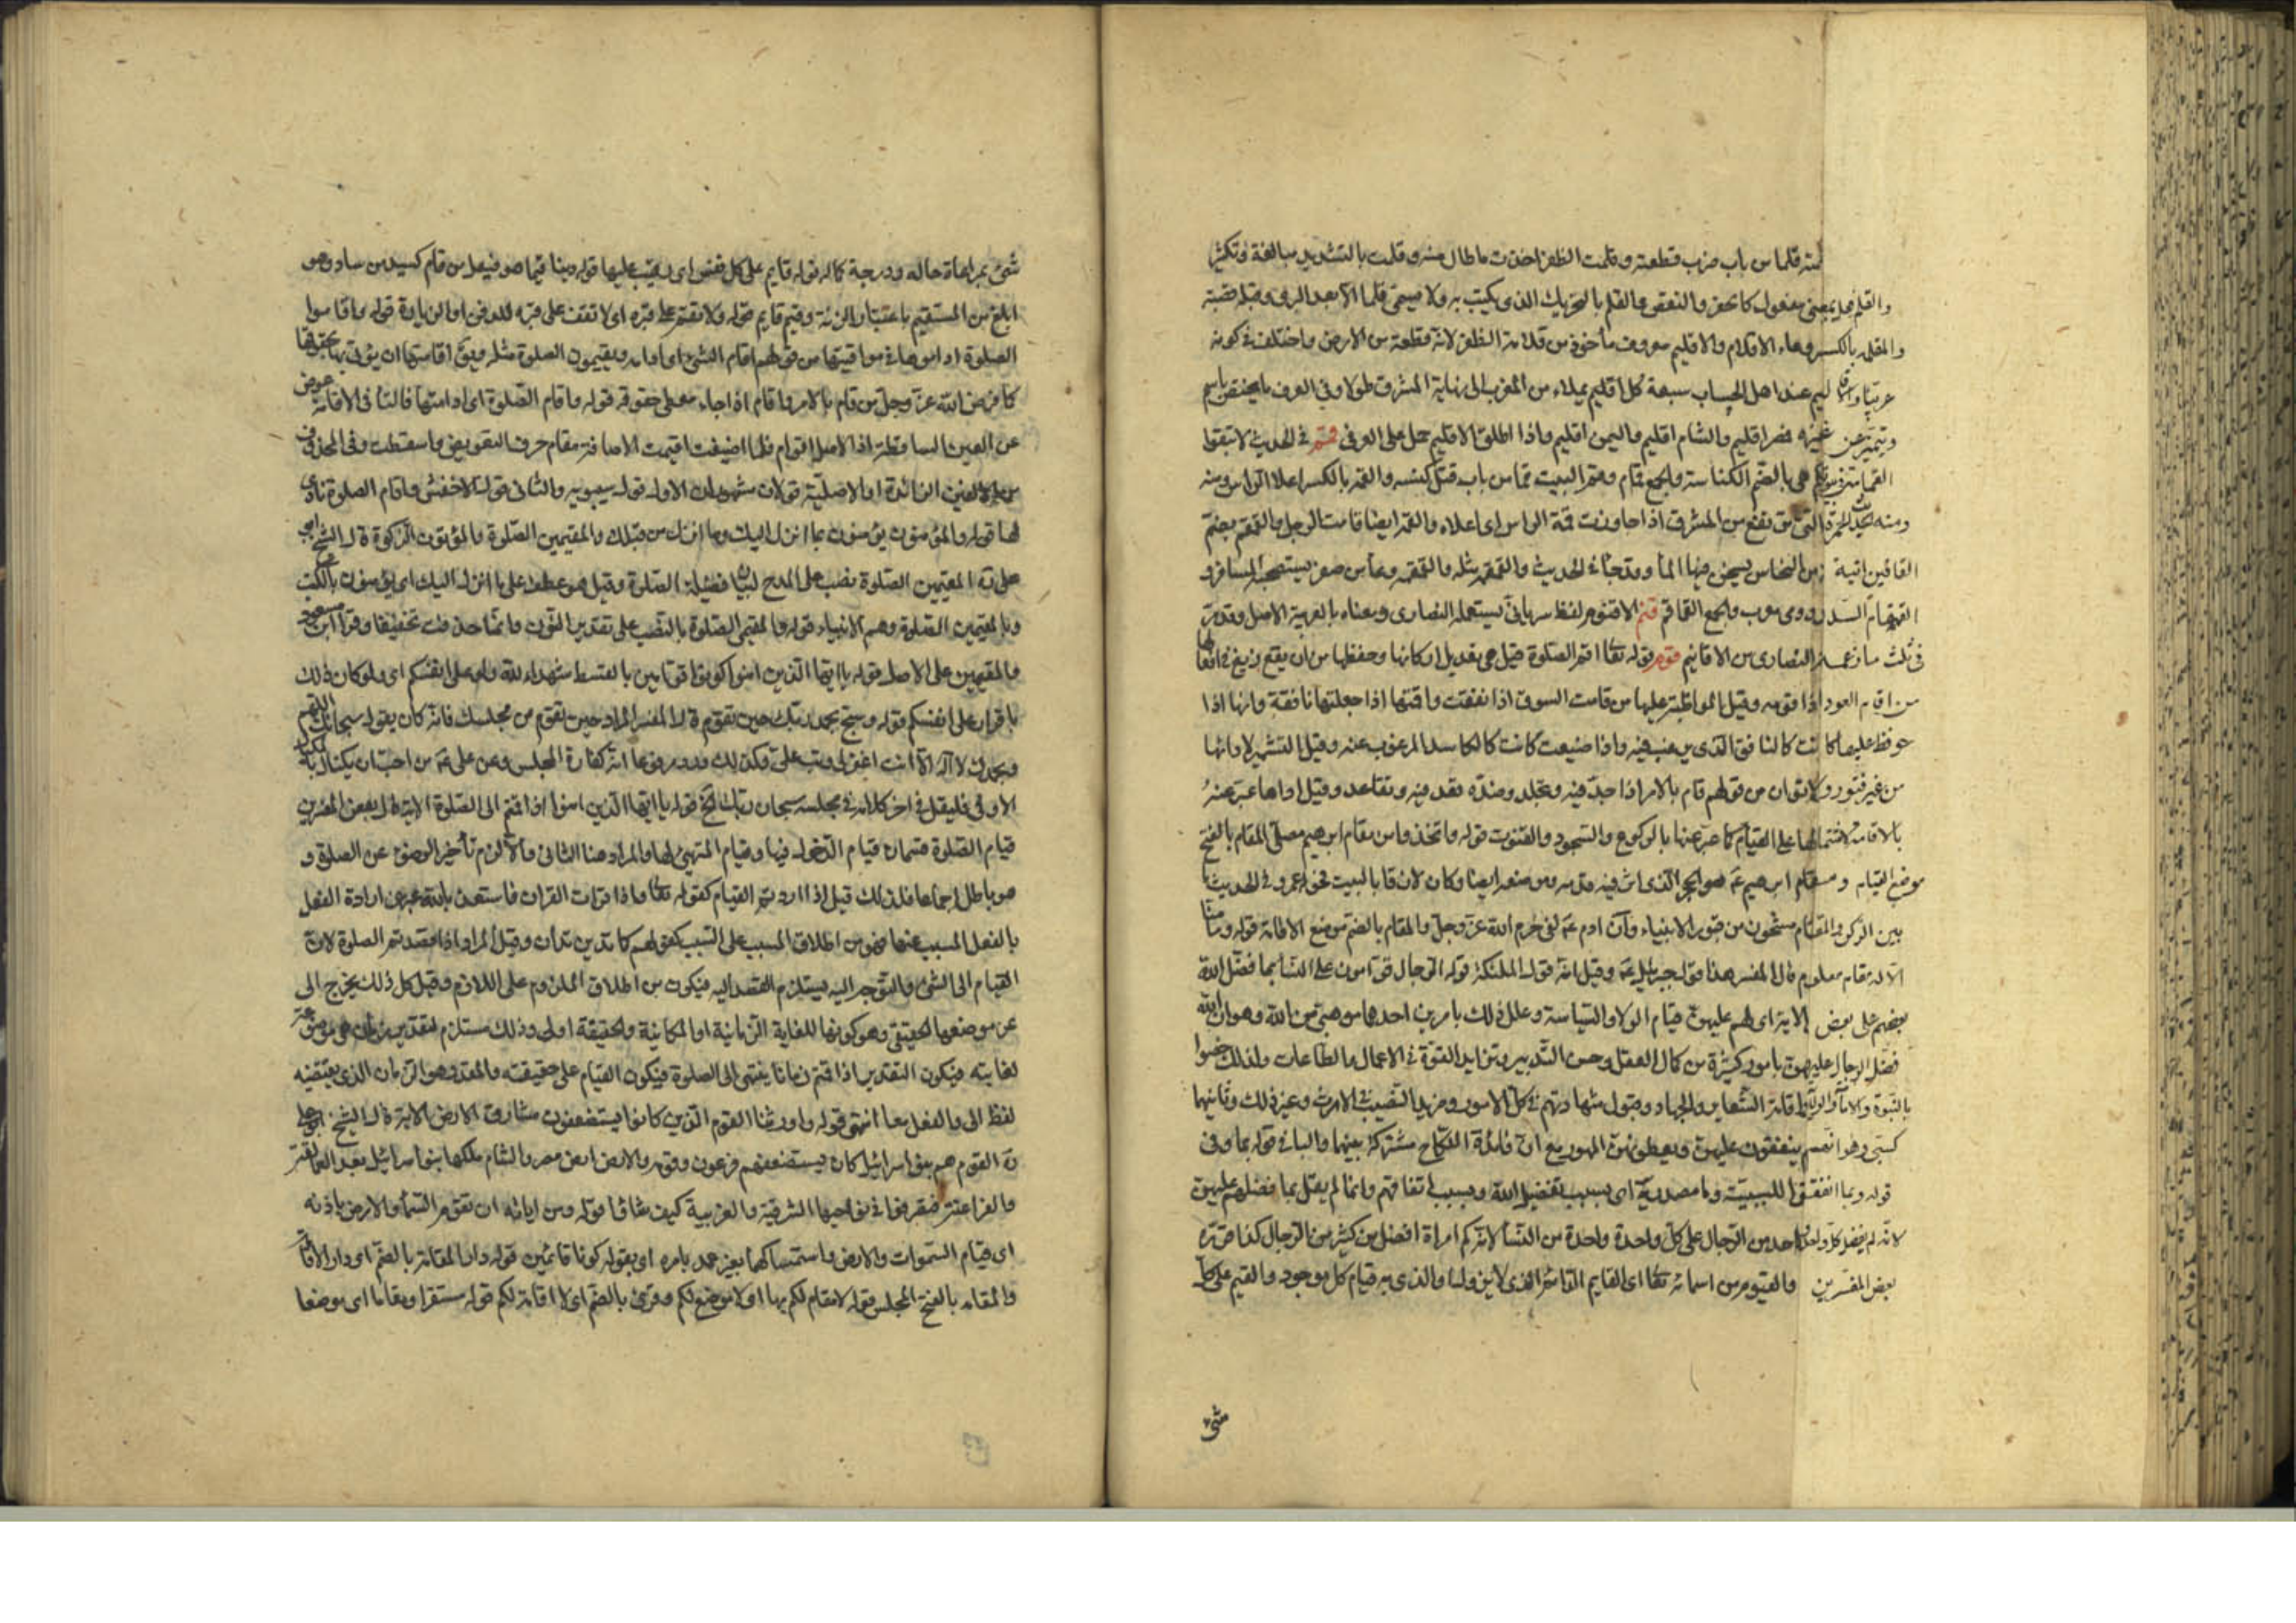 قلما من باب ضرب قطعته وقلمت الظفر اخذت ما طال منه وقلمت بالتشديد مبالغة وتكثير
والقلم فعل بمعنى مفعول كالحفر والنقص والقلم بالتحريك الذى يكتب به ولا يسمى قلما الا بعد البرى وقبله قصبة
والمقلمة بالكسر وعاء الاقلام والاقليم معروف مأخوذ من قلامة الظفر لانه قطعة من الارض واختلف فى كونه
عربيا والاقاليم عند اهل الحساب سبعة كل اقليم يمتد من المغرب الى نهاية المشرق طولا وفى العرف ما يختص باسم
ويتميز عن غيره فمصر اقليم والشام اقليم واليمن اقليم واذا اطلق الاقليم حمل على العرفى قمم فى الحديث لا تبقوا
القمامة هى بالضم الكناسة والجمع قمام وقم البيت قما من باب قتل كنسه والقمة بالكسر اعلا الراس ومنه
ومنه الحمرة التى ترتفع من المشرق اذا جاوزت قمة الراس اى اعلاه والقمة ايضا قامة الرجل والقمقم بضم
القافين انية من النحاس يسخن فيها الماء وقد جاء فى الحديث والقمقمة مثله والقمقمة وعاء من صفر يستصحبه المسافر و
رومى معرب والجمع القماقم قنم الاقنوم لفظ سريانى يستعمله النصارى ومعناه بالعربية الاصل وقد مر
فى ثلث ما زعمه النصارى من الاقانيم قوم قوله تعالى اقم الصلوة قيل هى تعديل اركانها وحفظها من ان يقع زيغ فى افعالها
من اقام العود اذا قومه وقيل المواظبة عليها من قامت السوق اذا نفقت واقمتها اذا جعلتها نافقة وانها اذا
حوفظ عليها كانت كالنافق الذى يرغب فيه واذا ضيعت كانت كالكاسد المرغوب عنه وقيل التشمير لادائها
من غير فتور ولا توان من قولهم قام بالامر اذا جد فيه وتجلد وضده قعد فيه وتقاعد وقيل اداها عبر عنه
بالاقامة لاشتمالها على القيام كما عبر عنها بالركوع والسجود والقنوت قوله واتخذوا من مقام ابرهيم مصلى المقام بالفتح
موضع القيام ومقام ابرهيم عم هو الحجر الذى اثر فيه قدمه وموضعه ايضا وكان لازقا بالبيت فحوله عمر وفى الحديث ما
بين الركن والمقام مشحون من قبور الانبياء وان ادم عم لفى حرم الله عز وجل والمقام بالضم موضع الاقامة قوله وما منا
الا له مقام معلوم قال المفسر هذا قول جبرئيل عم وقيل انه قول الملئكة قوله الرجال قوامون على النساء بما فضل الله
بعضهم على بعض الاية اى لهم عليهن قيام الولاء والسياسة وعلل ذلك بامرين احدهما موهبى من الله وهو ان الله
فضل الرجال عليهن بامور كثيرة من كمال العقل وحسن التدبير وتزايد القوة فى الاعمال والطاعات ولذلك خصوا
بالنبوة والامامة والولاية واقامة الشعاير والجهاد وقبول شهادتهم فى كل الامور ومزيد النصيب فى الارث وغير ذلك وثانيهما
كسبى وهو انهم ينفقون عليهن ويعطونهن المهور مع ان فائدة النكاح مشتركة بينهما والباء فى قوله بما وفى
قوله وبما انفقوا للسببية وما مصدرية اى بسبب تفضيل الله وبسبب انفاقهم وانما لم يقل بما فضلهم عليهن
لانه لم يفضل كل واحد من الرجال على كل واحدة واحدة من النساء لانه كم امراة افضل من كثير من الرجال كذا قرره
بعض المفسرين والقيوم من اسمائه تعالى اى القايم الدائم الذى لا يزول او الذى به قيام كل موجود والقيم على كل
شئ
شئ بمراعاة حاله ودرجة كماله قوله قايم على كل نفس اى رقيب عليها قوله دينا قيما هو فيعل من قام كسيد من ساد وهو
ابلغ من المستقيم باعتبار الزنة وقيم قايم قوله ولا تقم على قبره اى لا تقف على قبره للدفن او الزيارة قوله واقاموا
الصلوة اداموها فى مواقيتها من قولهم اقام الشئ اى ادامه ويقيمون الصلوة مثله ويق اقامتها ان يؤتى بها بحقوقها
كما فرض الله عز وجل من قام بالامر واقام اذا جاء معطى حقوقه قوله واقام الصلوة اى ادامتها فالتاء فى الاقامة عوض
عن العين الساقطة اذ الاصل اقوام فلما اضيفت اقيمت الاضافة مقام حرف التعويض واسقطت وفى المحذوف
من العين الزائدة او الاصلية قولان مشهوران الاول قول سيبويه والثانى قول الاخفش واقام الصلوة نادى
لها قوله والمؤمنون يؤمنون بما انزل اليك وما انزل من قبلك والمقيمين الصلوة والمؤتون الزكوة قال الشيخ ابو
على ره المقيمين الصلوة نصب على المدح لبيان فضيلة الصلوة وقيل هو عطف على بما انزل اليك اى يؤمنون بالكتب
وبالمقيمين الصلوة وهم الانبياء قوله والمقيمى الصلوة بالنصب على تقدير النون وانما حذفت تخفيفا وقرا ابن مسعود
والمقيمين على الاصل قوله يا ايها الذين امنوا كونوا قوامين بالقسط شهداء لله ولو على انفسكم اى ولو كان ذلك
باقرار على انفسكم قوله وسبح بحمد ربك حين تقوم قال المفسر المراد حين تقوم من مجلسك فانه كان يقول سبحانك اللهم
وبحمدك لا اله الا انت اغفر لى وتب على وكذلك قد روى مرفوعا انه كفارة المجلس وعن على عم من احب ان يكتال بالمكيال
الاوفى فليقل فى اخر كلامه فى مجلسه سبحان ربك الخ قوله يا ايها الذين امنوا اذا قمتم الى الصلوة الاية قال بعض المفسرين
قيام الصلوة قسمان قيام الدخول فيها وقيام المتهيئ لها والمراد هنا الثانى والا لزم تأخير الوضوء عن الصلوة و
هو باطل اجماعا فلذلك قيل اذا اردتم القيام كقوله تعالى واذا قرات القران فاستعذ بالله عبر عن ارادة الفعل
بالفعل المسبب عنها فهو من اطلاق المسبب على السبب كقولهم كما تدين تدان وقيل المراد اذا قصدتم الصلوة لان
القيام الى الشئ والتوجه اليه يستلزم القصد اليه فيكون من اطلاق الملزوم على اللازم وقيل كل ذلك يخرج الى
عن موضعها الحقيقى وهو كونها للغاية الزمانية او المكانية والحقيقة اولى وذلك مستلزم لتقدير زمان
لغايته فيكون التقدير اذا قمتم زمانا ينتهى الى الصلوة فيكون القيام على حقيقته والمقدر هو الزمان الذى يقتضيه
لفظ الى والفعل معا انتهى قوله واورثنا القوم الذين كانوا يستضعفون مشارق الارض الاية قال الشيخ ابو على
ره القوم هم بنو اسرائيل كان يستضعفهم فرعون وقومه والارض ارض مصر والشام ملكها بنو اسرائيل بعد العمالقة
والفراعنة فتصرفوا فى نواحيها الشرقية والغربية كيف شاؤا قوله ومن اياته ان تقوم السماء والارض باذنه
اى قيام السموات والارض واستمساكهما بغير عمد بامره اى بقوله كونا قائمين قوله دار المقامة بالضم اى دار الاقامة
والمقامة بالفتح المجلس قوله لا مقام لكم بها اى لا موضع لكم وقرئ بالضم اى لا اقامة لكم قوله مستقرا ومقاما اى موضعا